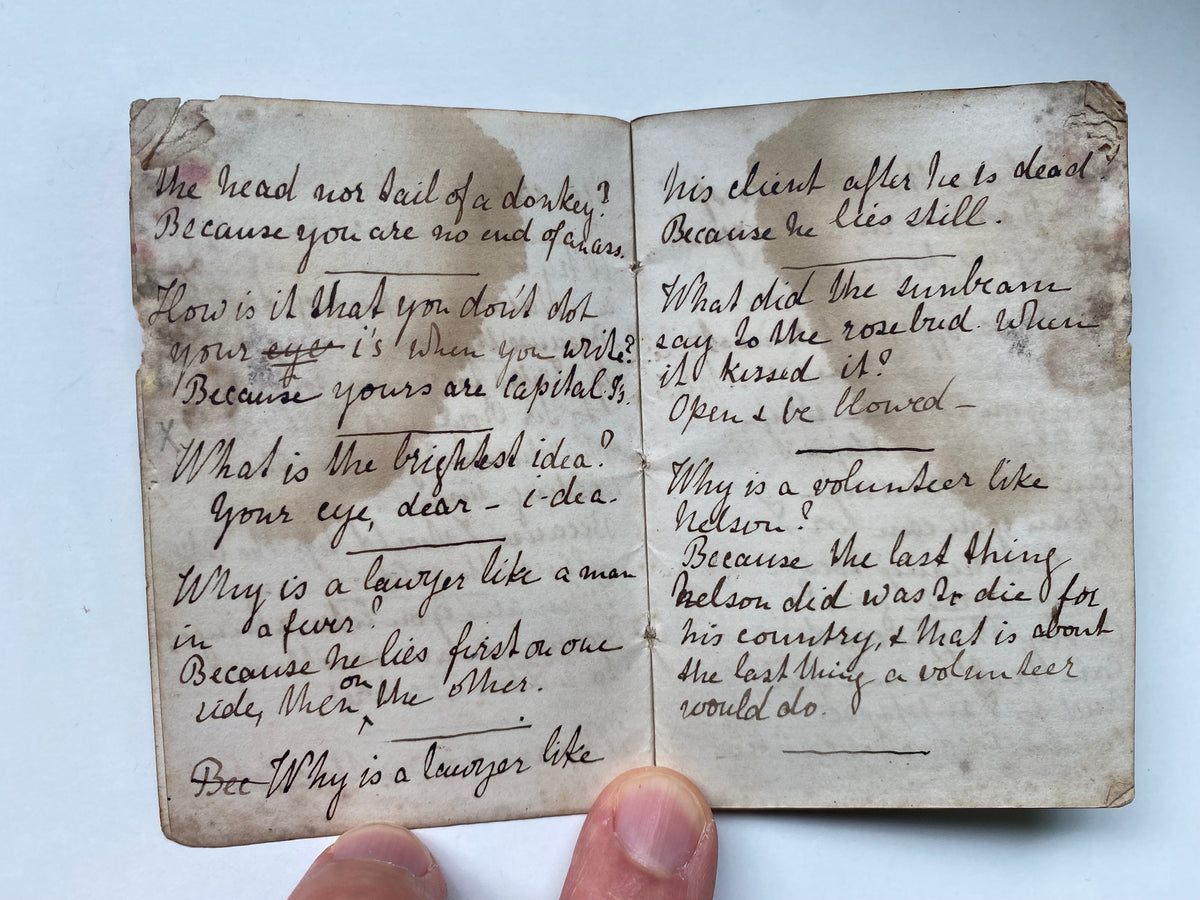 the head nor tail of a donkey?
Because you are no end of an ass.
How is it that you don't dot
your eye i's when you write?
Because yours are capital I's.
x
What is the brightest idea?
Your eye, dear - i-dea.
Why is a lawyer like a man
in a fever?
Because he lies first on one
side, then on the other.
Bec Why is a lawyer like
his client after he is dead?
Because he lies still.
What did the sunbeam
say to the rosebud when
it kissed it?
Open & be blowed -
Why is a volunteer like
Nelson?
Because the last thing
Nelson did was to die for
his country, & that is about
the last thing a volunteer
would do.